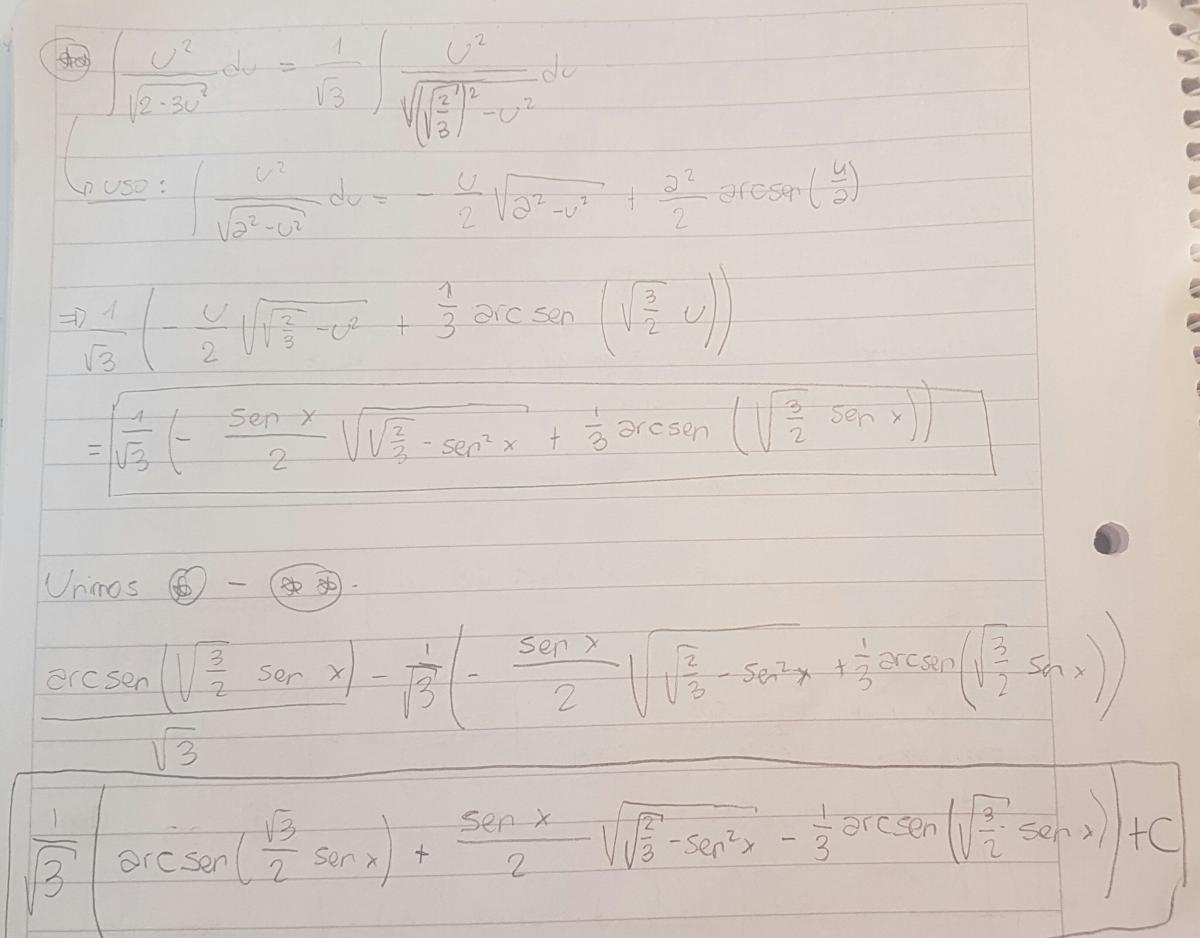 (**) ∫ u²/√(2-3u²) du = 1/√3 ∫ u²/√((√(2/3))² - u²) du
↳ uso: ∫ u²/√(a²-u²) du = - u/2 √(a²-u²) + a²/2 arcsen(u/a)
⇒ 1/√3 (- u/2 √(√(2/3) - u²) + 1/3 arcsen (√(3/2) u))
= 1/√3 (- sen x/2 √(√(2/3) - sen² x) + 1/3 arcsen (√(3/2) sen x))
Unimos (*) - (**).
arcsen(√(3/2) sen x)/√3 - 1/√3 (- sen x/2 √(√(2/3) - sen² x) + 1/3 arcsen(√(3/2) sen x))
1/√3 (arcsen(√3/2 sen x) + sen x/2 √(√(2/3) - sen² x) - 1/3 arcsen(√(3/2) · sen x)) + C